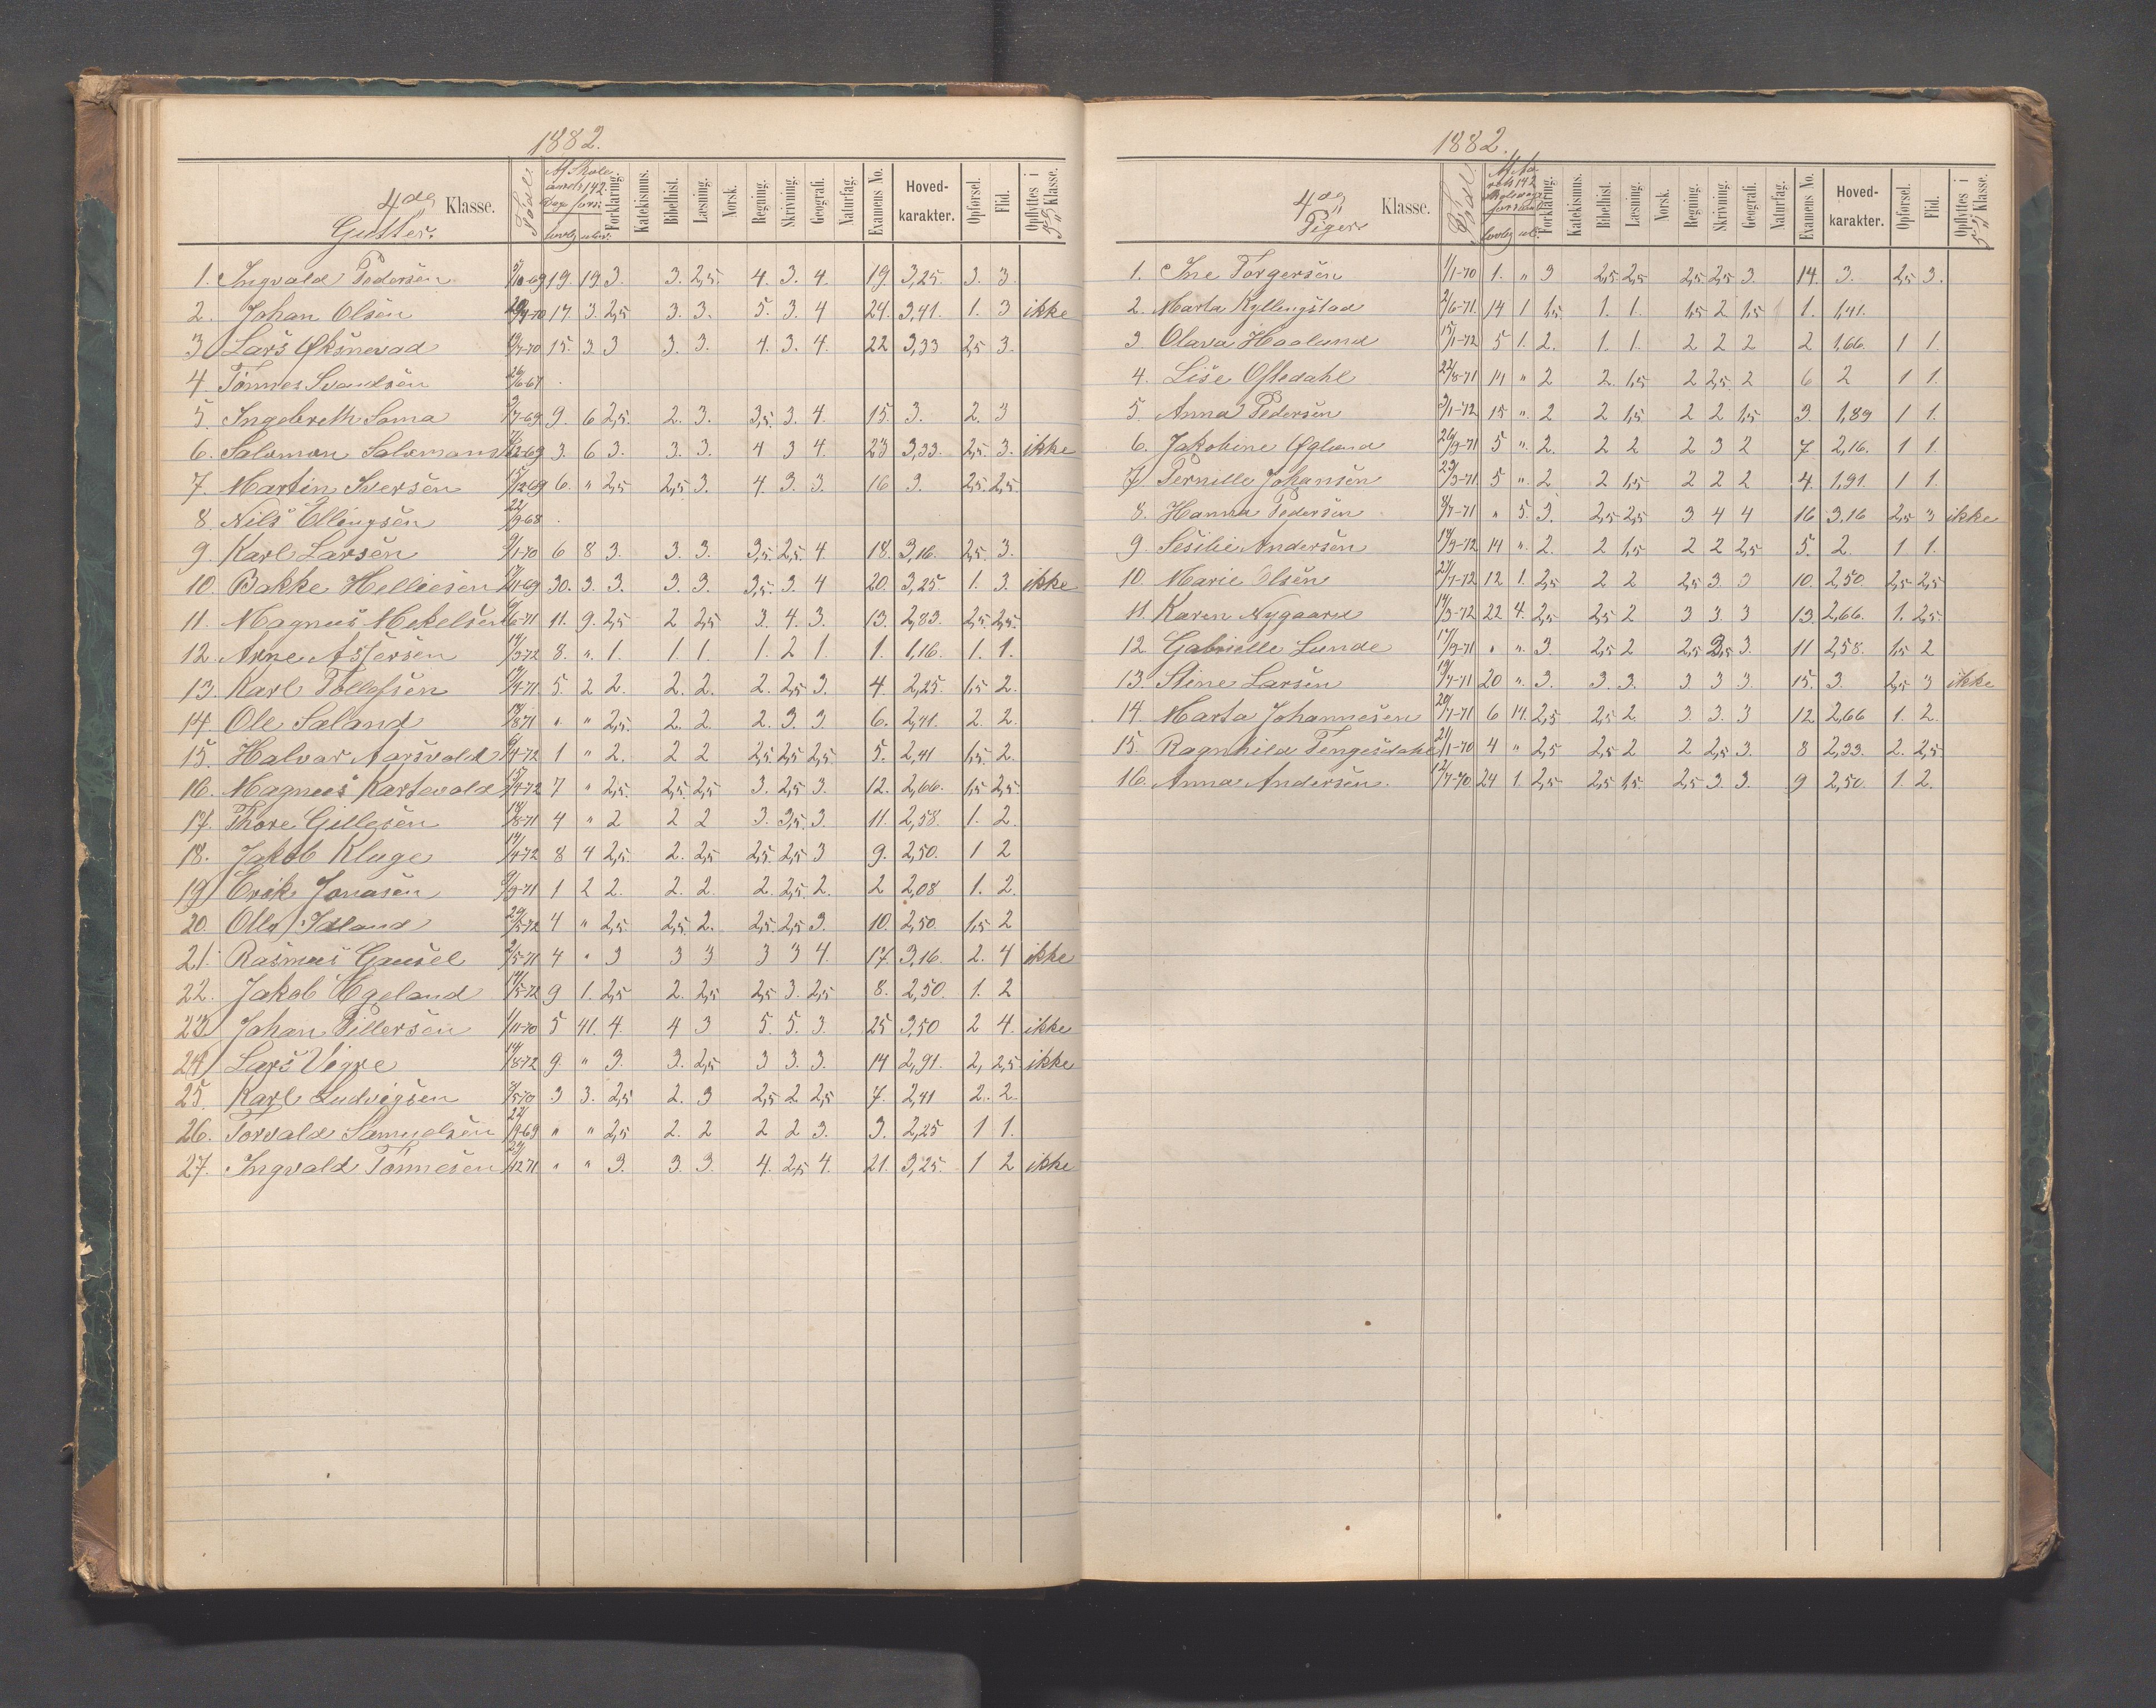 1882.
4de Klasse. Gutter. Född. Af Skoleaarets 142 Dage fors: lovlig ulov: Forklaring. Katekismus. Bibelhist. Læsning. Norsk. Regning. Skrivning. Geografi. Naturfag. Examens No. Hoved-karakter. Opførsel. Flid. Opflyttes i 5te Klasse.
1. Ingvald Pedersen 19. 19. 3. 3. 2,5. 4. 3. 4. 19. 3,25. 3. 3.
2. Johan Olsen 17. 3. 2,5 3. 3. 5. 3. 4 24. 3,41. 1. 3 ikke
3 Lars Øksnevad 15. 3. 3 3. 3. 4. 3. 4. 22 3,33 2,5 3.
4. Tønnes Svendsen 26/6-67
5. Ingebreth Soma 9. 6 2,5. 2. 3. 3,5. 3. 4. 15. 3. 2. 3
6. Salomon Salomons 3. 6 3. 3. 3. 4 3 4. 23 3,33. 2,5. 3. ikke
7. Martin Iversen 15/12-69 6. " 2,5 2,5 3. 4. 3. 3. 16 3. 2,5. 2,5.
8 Nils Ellingsen 22/9-68
9. Karl Larsen 6 8 3. 3. 3. 3,5. 2,5. 4 18. 3,16. 2,5. 3.
10. Bakke Helliesen 30. 3. 3. 3. 3. 3,5. 3. 4 20. 3,25. 1. 3. ikke
11. Magnus Mekelsen 11. 9. 2,5 2 2,5 3. 4. 3. 13. 2,83. 2,5 2,5.
12. Arne Asjersen 8. ". 1. 1. 1. 1. 2 1. 1. 1,16. 1. 1.
13. Karl Tollefsen 5. 2 2. 2. 2. 2. 2,5 3. 4. 2,25. 1,5 2.
14. Ole Saland " " 2,5. 2. 2. 2. 3. 3 6. 2,41. 2. 2.
15. Halvar Aarsvold 1 " 2. 2 2 2,5. 2,5 2,5. 5. 2,41 1,5. 2.
16. Magnus Kartevold 7 " 2,5. 2,5. 2,5 3. 2,5 3. 12. 2,66. 1,5 2,5
17. Thore Gillesen 4 " 2 2 2 3. 3,5. 3. 11. 2,58. 1. 2.
18. Jakob Kluge 8 4 2,5. 2. 2,5 2,5. 2,5 3 9. 2,50. 1 2
19 Erik Jonasen 1 2 2. 2. 2. 2. 2,5. 2. 2 2,08 1. 2.
20. Olla Idland 4 " 2,5. 2,5. 2. 2,5. 2,5 3. 10. 2,50. 1,5 2
21. Rasmus Gausel 4 " 3 3 3 3 3 4. 17. 3,16. 2. 4 ikke
22. Jakob Egeland 9 1. 2,5 2. 2,5 2,5 3. 2,5 8. 2,50. 1. 2
23 Johan Pillersen 1/11-70 5 41. 4. 4 3 5. 5. 3. 25 3,50 2 4. ikke
24 Lars Vigre 9. " 3. 3. 2,5 3 3. 3. 14 2,91. 2, 2,5 ikke
25. Karl Ludvigsen 3 3. 2,5 2. 3 2,5 2 2,5 7. 2,41 2. 2.
26. Torvald Samuelsen " " 2,5 2. 2 2 2 3. 3. 2,25 1 1.
27. Ingvald Tønnesen " " 3. 3. 3. 4. 2,5 4. 21. 3,25. 1 2 ikke
1882.
4de Klasse. Piger. lovlig ulo: Forklaring. Katekismus. Bibelhist. Læsning. Norsk. Regning. Skrivning. Geografi. Naturfag. Examens No. Hoved-karakter. Opførsel. Flid. Opflyttes i 5te Klasse.
1. Ine Torgersen 1/1-70 1. " 3 2,5 2,5 2,5 2,5 3. 14. 3. 2,5 3.
2. Marta Kyllingstad 2/6-71. 14 1 1,5. 1. 1. 1,5 2 1,5 1. 1,41.
3 Olava Haaland 15/1-72 5 1. 2. 1. 1. 2 2 2 2 1,66. 1 1.
4. Lise Oftedahl 22/8-71 14 " 2 2. 1,5 2 2,5. 2 6 2 1 1.
5. Anna Pedersen 3/1-72 15 ". 2 2 1,5 2 2 1,5 3. 1,89 1 1.
6. Jakobine Øglund 26/9-71 5 ". 2. 2 2 2 3 2 7 2,16. 1 1.
7 Pernille Johansen 23/3-71 5 ". 2 2 1,5 2 2 2 4. 1,91. 1 1.
8. Hanna Pedersen 8/7-71 " 5. 3. 2,5 2,5 3 4 4 16 3,16 2,5 3 ikke
9. Sesilie Andersen 14/9-72 14 ". 2. 2 1,5 2 2 2,5 5. 2. 1 1.
10. Marie Olsen 12 1. 2,5 2 2 2,5 3. 3 10. 2,50. 2,5 2,5
11. Karen Nygaard 14/3-72 22 4. 2,5 2,5 2 3 3. 3 13. 2,66. 1. 2,5.
12. Gabrielle Lunde 17/9-71 " ". 3. 2,5 2 2,5 2,5 3. 11 2,58. 1,5 2
13. Stine Larsen 20 ". 3. 3. 3. 3 3 3. 15. 3. 2,5 3 ikke
14. Marta Johannesen 6 14. 2,5 2,5 2. 3. 3. 3 12. 2,66 1. 2.
15. Ragnhild Tengesdahl 21/1-70 4 " 2,5 2,5 2 2 2,5 3. 8 2,33. 2. 2,5
16. Anna Andersen. 12/7-70 24 1. 2,5 2,5 1,5. 2,5 3. 3. 9 2,50. 1. 2.